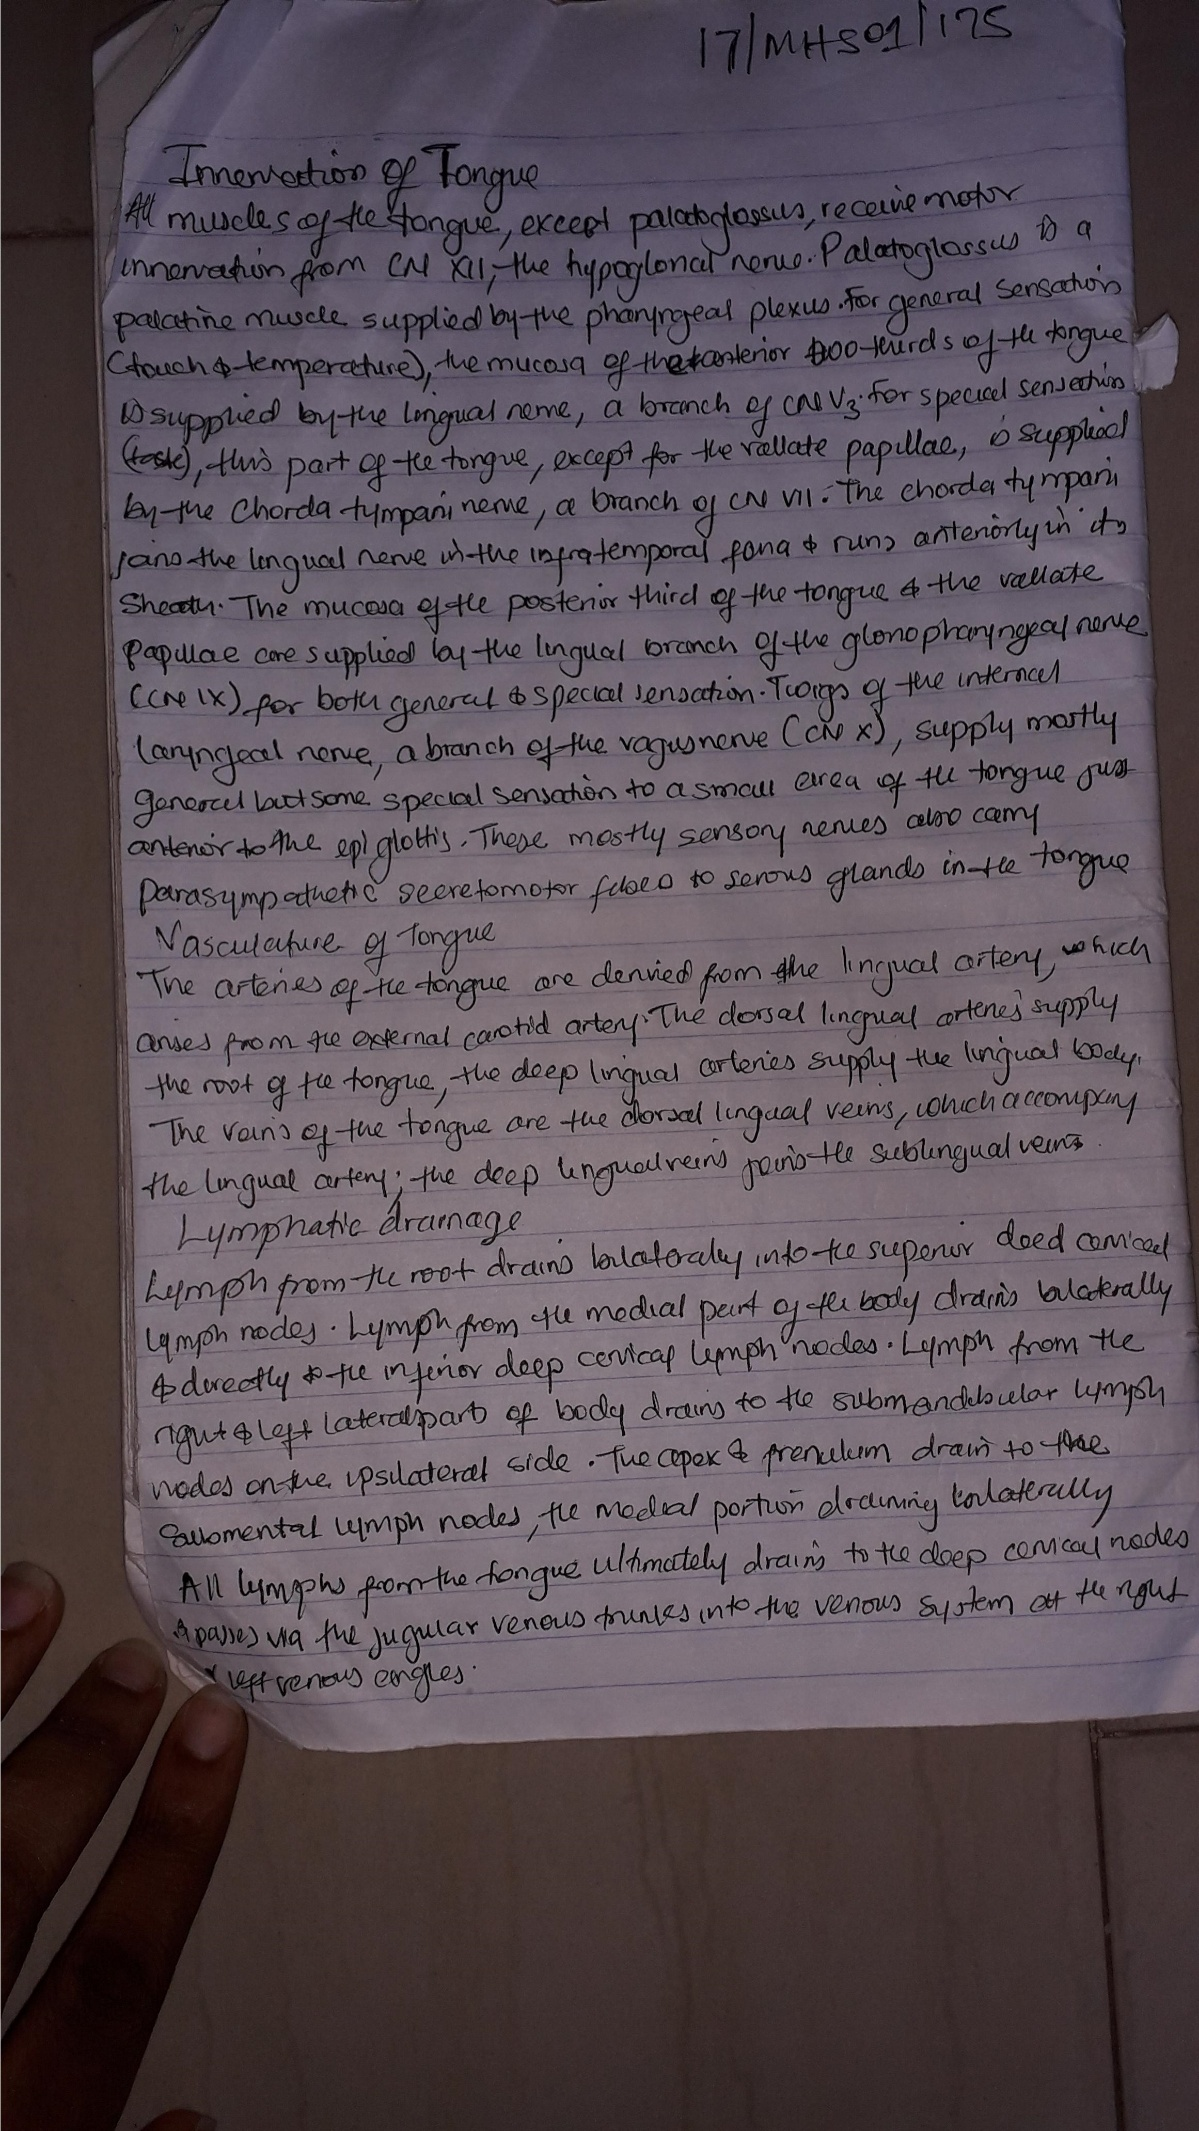 17/MHS01/175
Innervation of Tongue
All muscles of the tongue, except palatoglossus, receive motor
innervation from CN XII, the hypoglossal nerve. Palatoglossus is a
palatine muscle supplied by the pharyngeal plexus. For general sensation
(touch & temperature), the mucosa of the anterior two-thirds of the tongue
is supplied by the lingual nerve, a branch of CN V3. For special sensation
(taste), this part of the tongue, except for the vallate papillae, is supplied
by the Chorda tympani nerve, a branch of CN VII. The chorda tympani
joins the lingual nerve in the infratemporal fossa & runs anteriorly in its
Sheath. The mucosa of the posterior third of the tongue & the vallate
Papillae are supplied by the lingual branch of the glossopharyngeal nerve
(CN IX) for both general & special sensation. Twigs of the internal
laryngeal nerve, a branch of the vagus nerve (CN X), supply mostly
general but some special sensation to a small area of the tongue just
anterior to the epiglottis. These mostly sensory nerves also carry
parasympathetic secretomotor fibres to serous glands in the tongue
Vasculature of Tongue
The arteries of the tongue are derived from the lingual artery, which
arises from the external carotid artery. The dorsal lingual arteries supply
the root of the tongue, the deep lingual arteries supply the lingual body.
The veins of the tongue are the dorsal lingual veins, which accompany
the lingual artery; the deep lingual veins joins the sublingual veins.
Lymphatic drainage
Lymph from the root drains bilaterally into the superior deed cervical
lymph nodes. Lymph from the medial part of the body drains bilaterally
& directly to the inferior deep cervical lymph nodes. Lymph from the
right & left lateral parts of body drains to the submandibular lymph
nodes on the ipsilateral side. The apex & frenulum drain to the
Submental lymph nodes, the medial portion draining bilaterally
All lymphs from the tongue ultimately drains to the deep cervical nodes
& passes via the jugular venous trunks into the venous system at the right
& left venous angles.